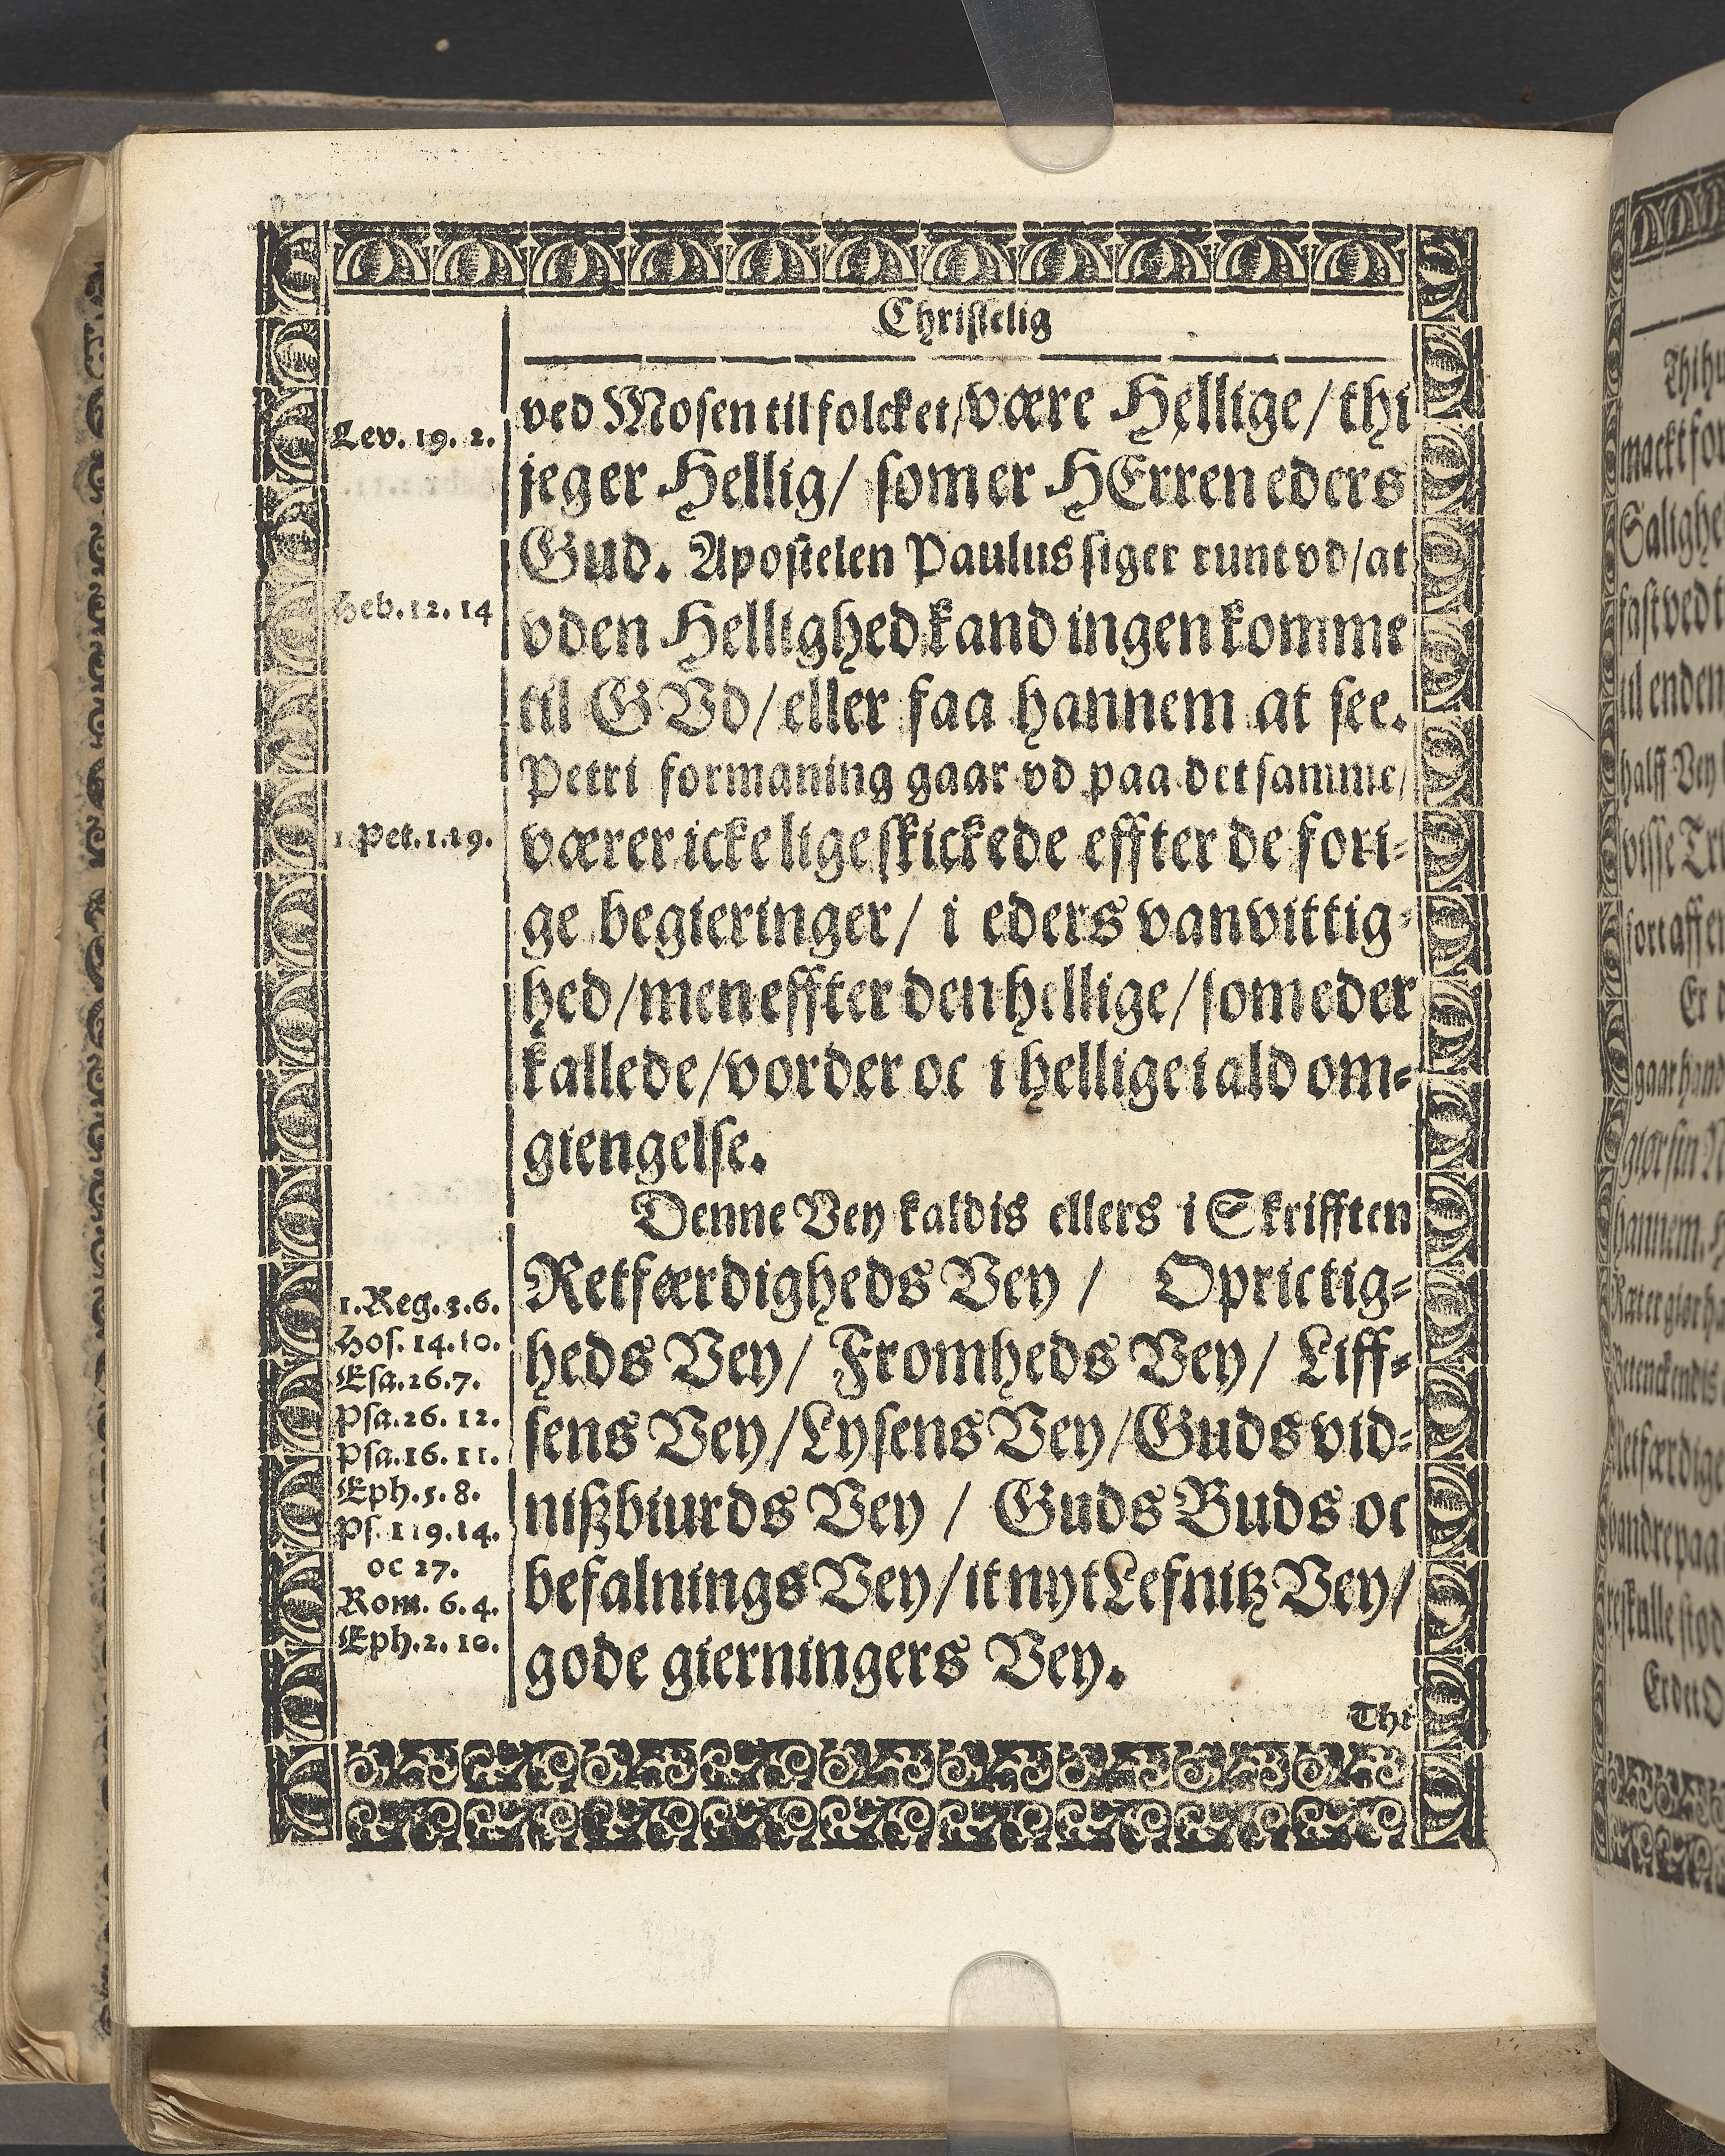 Christelig
ved Mosen til folcket/være Hellige/thi
Lev. 19. 2.
jeg er Hellig/ som er HErren eders
Gud. Apostelen Paulus siger runt vd/at
Heb. 12. 14
vden Hellighed kand ingen komme
til GVd/eller faa hannem at see.
Petri formaning gaar vd paa det samme/
1. Pet. 1. 19.
værer icke lige skickede effter de fori-
ge begieringer/ i eders vanvittig-
hed/men effter den hellige/som eder
kallede/vorder oc i hellige i ald om-
giengelse.
Denne Vey kaldis ellers i Skrifften
Retfærdigheds Vey / Oprictig-
heds Vey/ Fromheds Vey/ Liff-
sens Vey/Lysens Vey/Guds vid-
nißbiurds Vey / Guds Buds oc
befalnings Vey/it nyt Lefnitz Vey/
gode gierningers Vey.
1. Reg. 3. 6.
Hos. 14. 10.
Esa. 26. 7.
Psa. 26. 12.
Psa. 16. 11.
Eph. 5. 8.
Ps. 119. 14.
oc 27.
Rom. 6. 4.
Eph. 2. 10.
Thi